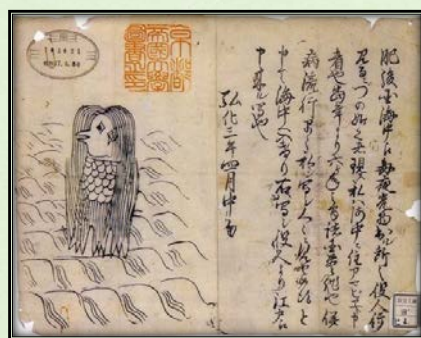 肥後国海中江毎夜光物出ル所之役人行
見るニづの如之者現ス私ハ海中ニ住アマビヱト申
者也当年より六ヶ年之間諸国豊作也併
病流行早々私シ写シ人々ニ見せ候得と
申て海中へ入けり右写シ役人より江戸江
申来ル写也
弘化三年四月中旬
京都
帝國大學
圖書之印